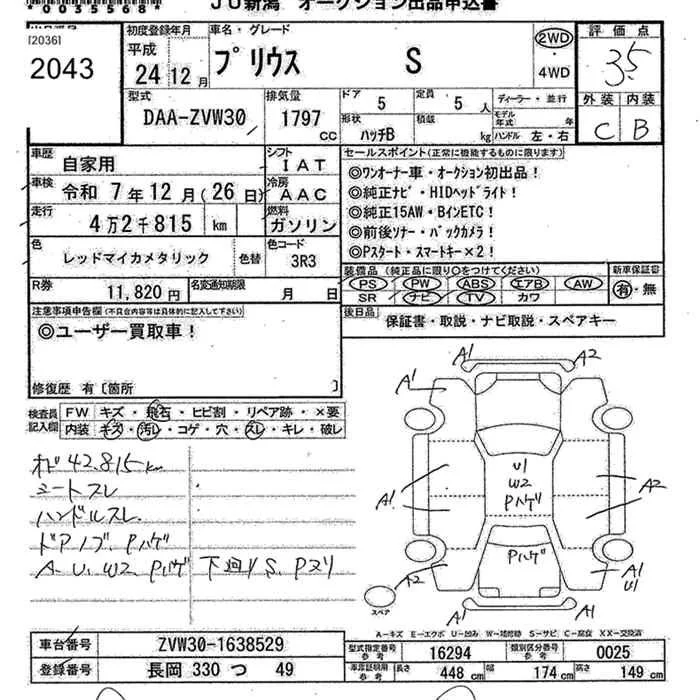 *0035568*
JU新潟 オークション出品申込書
[2036]
2043
初度登録年月
平成
24年12月
車名・グレード
プリウス S
2WD
4WD
評価点
3.5
外装 内装
C B
型式
DAA-ZVW30
排気量
1797 cc
ドア 5
定員 5 人
形状 ハッチB
積載 kg
ディーラー・並行
モデル年式 年
ハンドル 左・右
車歴 自家用
シフト IAT
車検 令和 7年12月(26日)
冷房 AAC
走行 4万2千815 km
燃料 ガソリン
色 レッドマイカメタリック 色替
色コード 3R3
R券 11,820円
名変通知期限 月 日
セールスポイント(正常に機能するものに限ります)
◎ワンオーナー車・オークション初出品!
◎純正ナビ・HIDヘッドライト!
◎純正15AW・BインETC!
◎前後ソナー・バックカメラ!
◎Pスタート・スマートキー×2!
装備品 (純正品に限り○をつけてください)
PS PW ABS エアB AW
SR ナビ TV カワ
新車保証書
有・無
後日品 保証書・取説・ナビ取説・スペアキー
注意事項申告欄(不具合内容等は具体的に記入して下さい)
◎ユーザー買取車!
修復歴 有〔箇所 〕
検査員記入欄
FW キズ・飛石・ヒビ割・リペア跡・×要
内装 キズ・汚レ・コゲ・穴・スレ・キレ・破レ
オド 42,815km
シートスレ
ハンドルスレ
ドアノブ、Pハゲ
A、U、W2、Pハゲ 下廻りS、Pヌリ
A1 A2
A1
U1
W2
Pハゲ
A1 A2
Pハゲ
A2 A1
U1
A1 A1
スペア
A-キズ E-エクボ U-凹み W-補修跡 S-サビ C-腐食 XX-交換済
車台番号 ZVW30-1638529
登録番号 長岡 330 つ 49
型式指定番号 参考 16294
類別区分番号 参考 0025
車庫証明用 参考 長さ 448 cm 幅 174 cm 高さ 149 cm